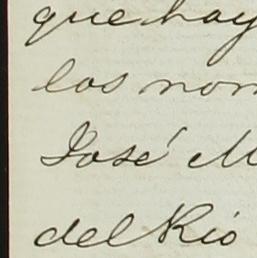 que hay
los nom
José M
del Rio